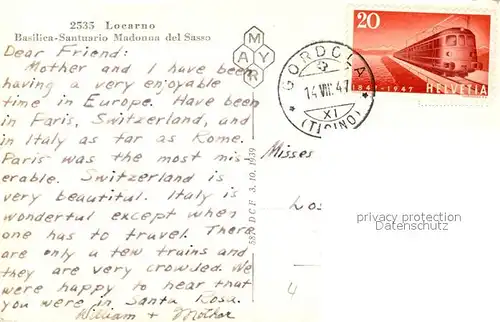 2535 Locarno
Basilica-Santuario Madonna del Sasso
Dear Friend:
Mother and I have been
having a very enjoyable
time in Europe. Have been
in Paris, Switzerland, and
in Italy as far as Rome.
Paris was the most mis-
erable. Switzerland is
very beautiful. Italy is
wonderful except when
one has to travel. There
are only a few trains and
they are very crowded. We
were happy to hear that
you were in Santa Rosa.
William + Mother
MAYR
3.10.1939
20
1847-1947
HELVETIA
GORDOLA
14.VIII.47
XI
(TICINO)
Misses
Los
4
privacy protection
Datenschutz